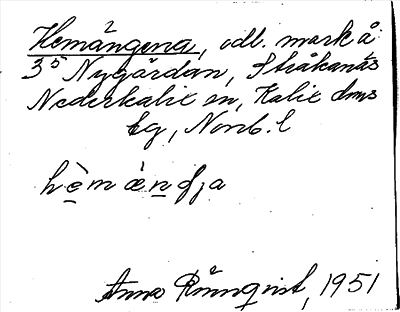 Hemängena, odl. mark å
3⁵ Nygårdan, Stråkanäs
Nederkalix sn, Kalix dmds
tg, Norrb. l
hèmàendja
Anna Rönnqvist, 1951